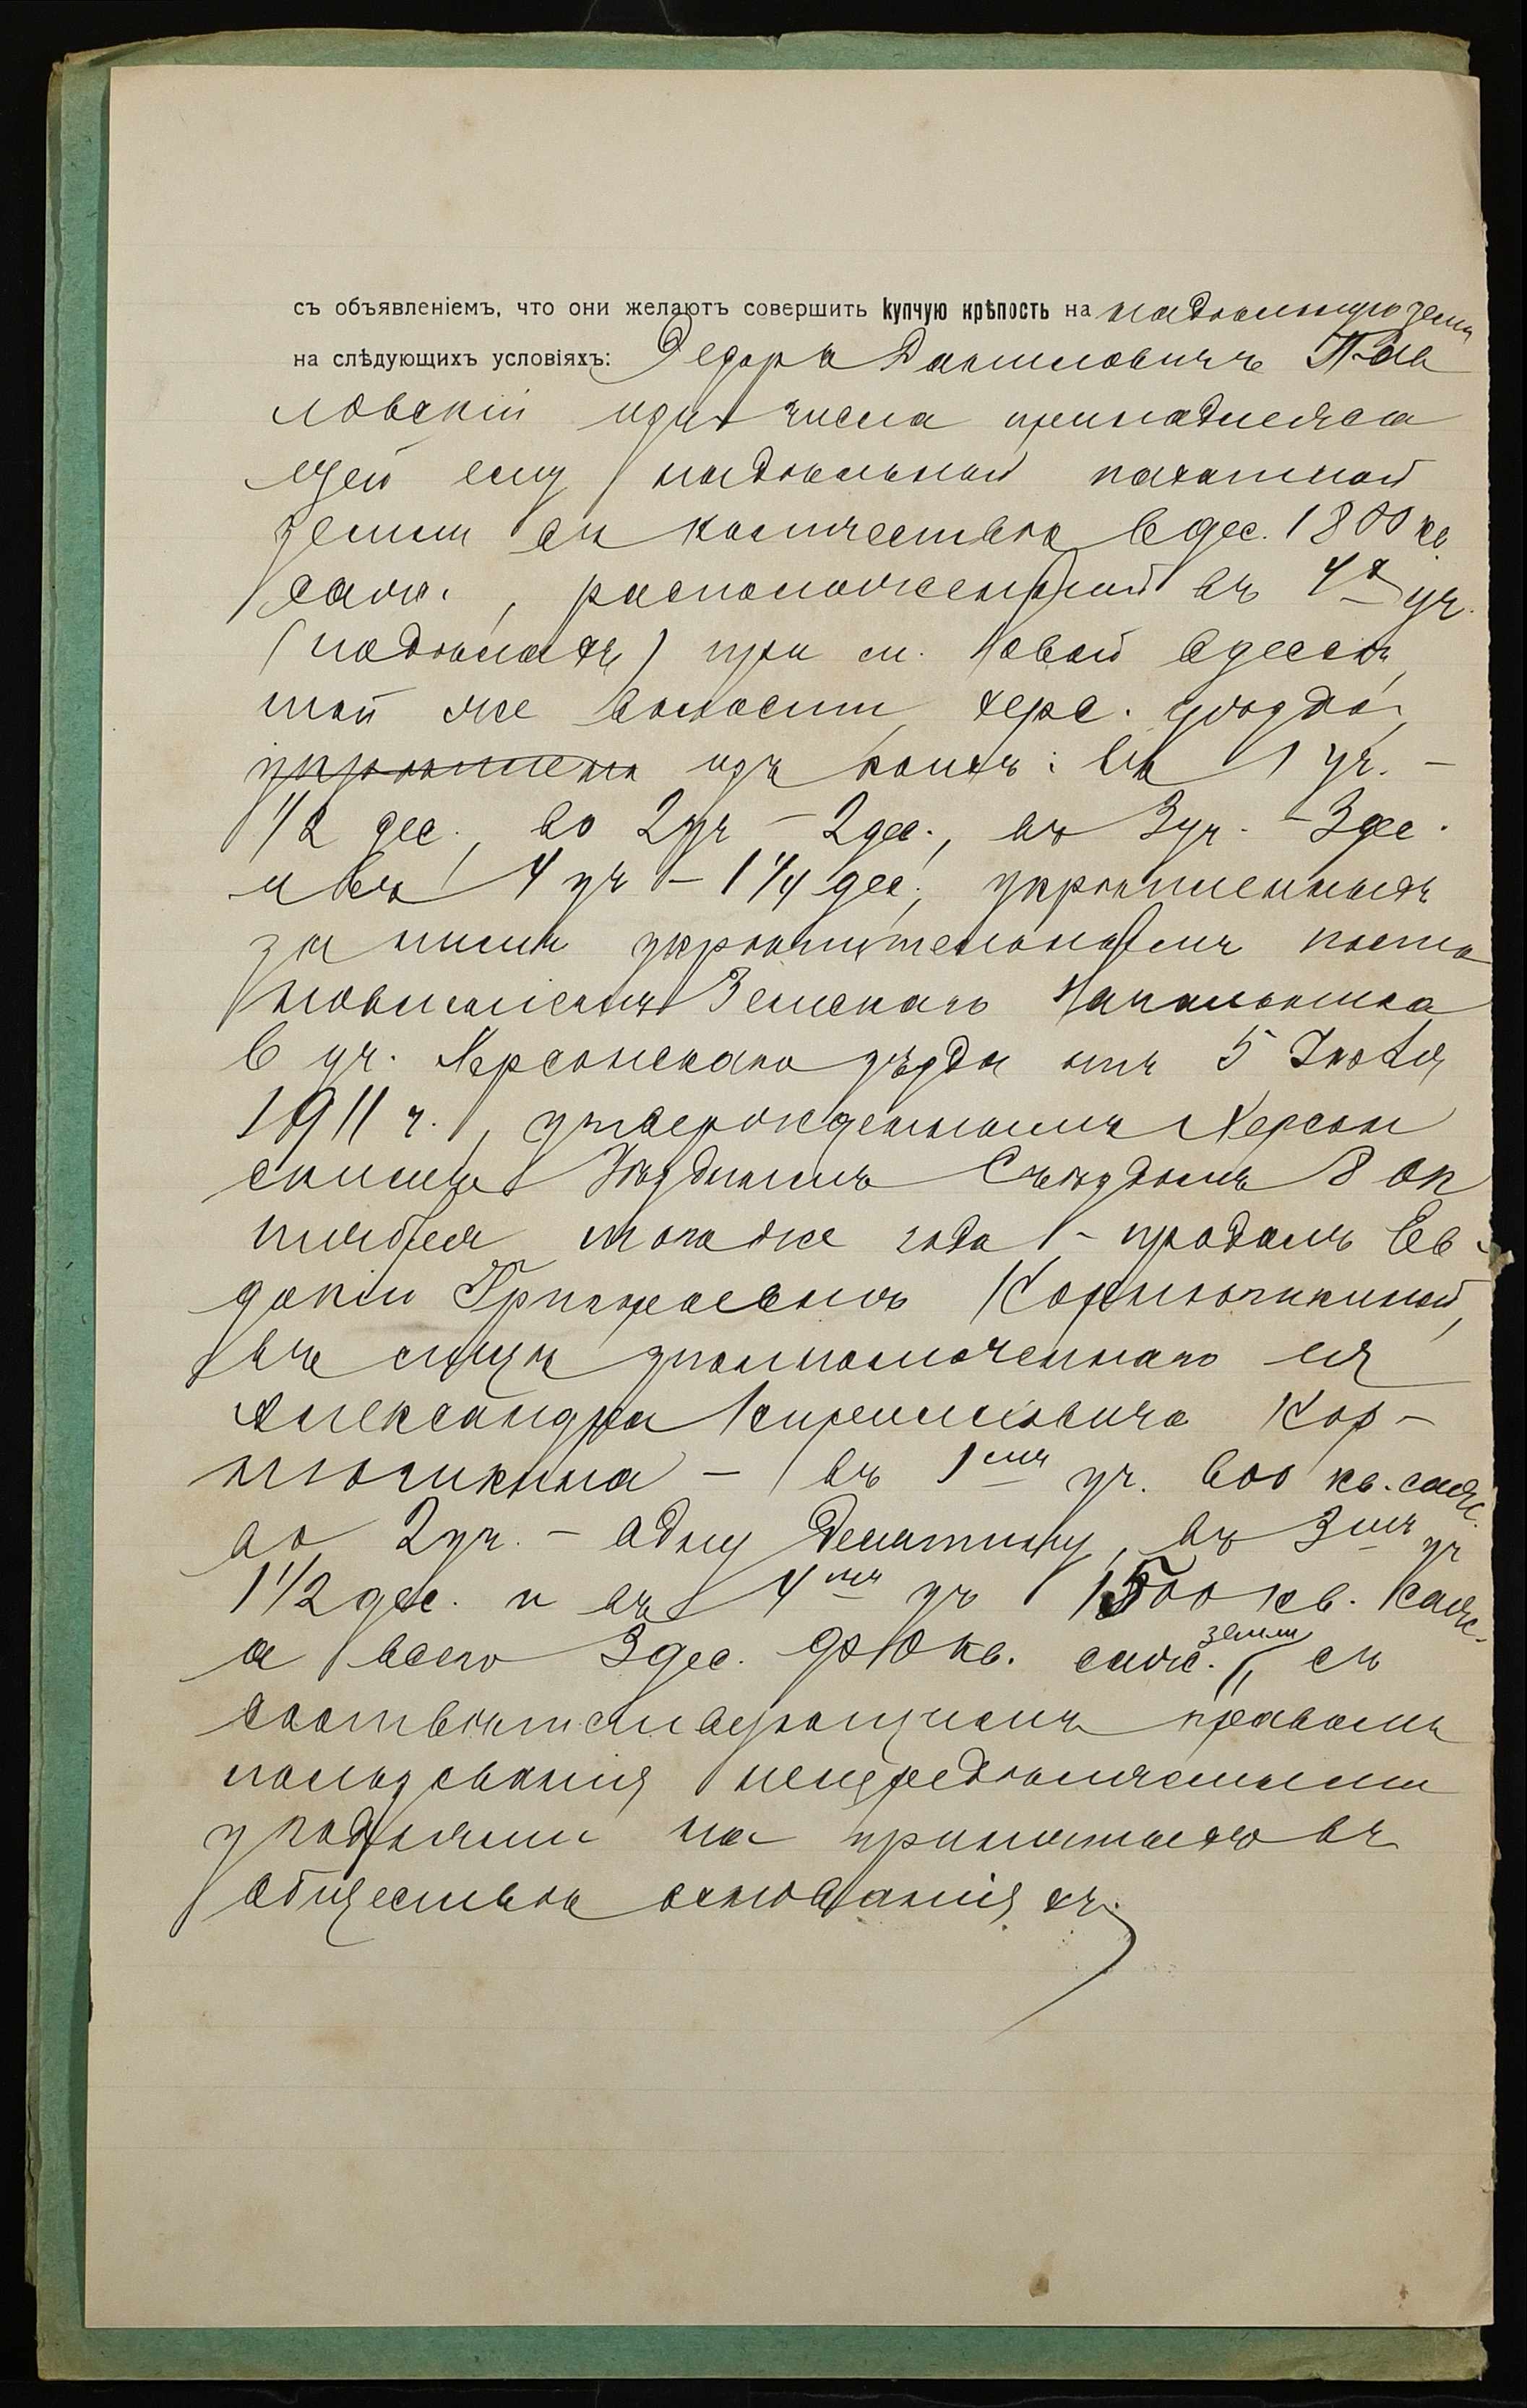 съ объявленіемъ, что они желаютъ совершить купчую крѣпость на надѣльную земл
на слѣдующихъ условіяхъ: Федоръ Даниловичъ Пав
ловскій изъ числа принадлежа
щей ему надѣльной пахатной
земли въ количествѣ 6 дес. 1800 кв
саж., расположенной въ 4х уч.
(надѣлахъ) при м. Новой Одессѣ,
той же волости, херс. уѣзда,
укрѣплен изъ коихъ: въ 1 уч. –
1/2 дес., во 2 уч – 2 дес., въ 3 уч. – 3 дес.
и въ 4 уч – 1 1/4 дес., укрѣпленныхъ
за нимъ укрѣпительнымъ поста
новленіемъ Земскаго Начальника
6 уч. Херсонскаго уѣзда отъ 5 Іюля
1911 г., утвержденнымъ Херсон
скимъ Уѣзднымъ Съѣздомъ 8 ок
тября того же года – продалъ Ев
докіи Григорьевнѣ Корнюшкиной,
въ лицѣ уполномоченнаго ея
Александра Кирилловича Кор-
нюшкина – въ 1мъ уч. 600 кв. саж.
во 2 уч. – одну десятину, въ 3мъ уч
1 1/2 дес. и въ 4мъ уч 1500 кв. саж.
а всего 3 дес. кв. саж. земли, съ
соотвѣтствующимъ правомъ
пользованія непередѣляемыми
угодьями на принятыхъ въ
обществѣ основаніяхъ.